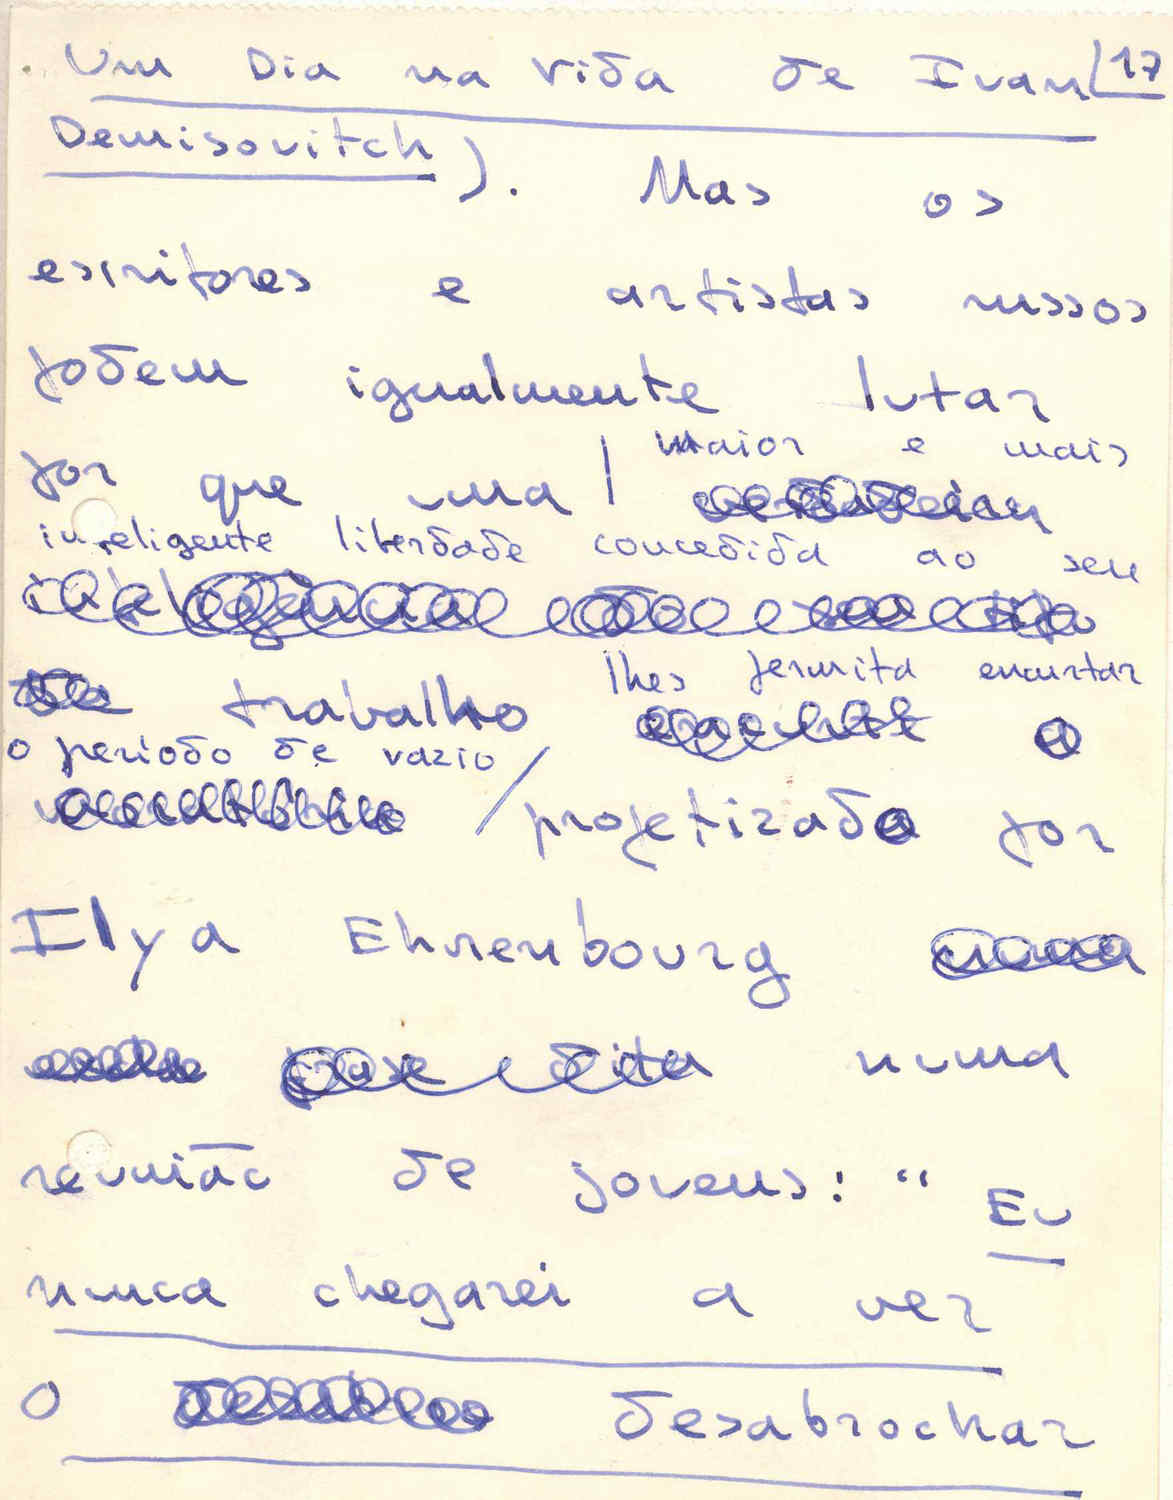 Um Dia na Vida de Ivan 17
Demisovitch). Mas os
escritores e artistas russos
podem igualmente lutar
por que uma maior e mais
inteligente liberdade concedida ao seu
trabalho lhes permita encurtar
o periodo de vazio projetizado por
Ilya Ehrenbourg
numa
reunião de jovens: "Eu
nunca chegarei a ver
o desabrochar